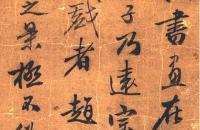 書畫在
子乃遠宗
戲者趙
之景極不